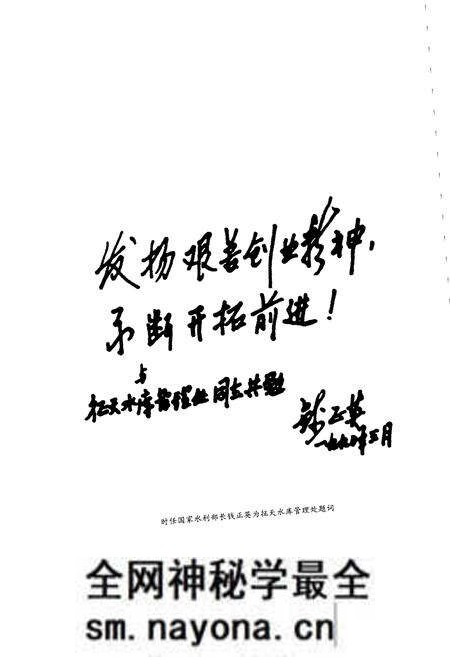 发扬艰苦创业精神，
不断开拓前进！
与
天水库管理处同志共勉
钱正英
一九九〇年三月
时任国家水利部长钱正英为天水库管理处题词
全网神秘学最全
sm.nayona.cn